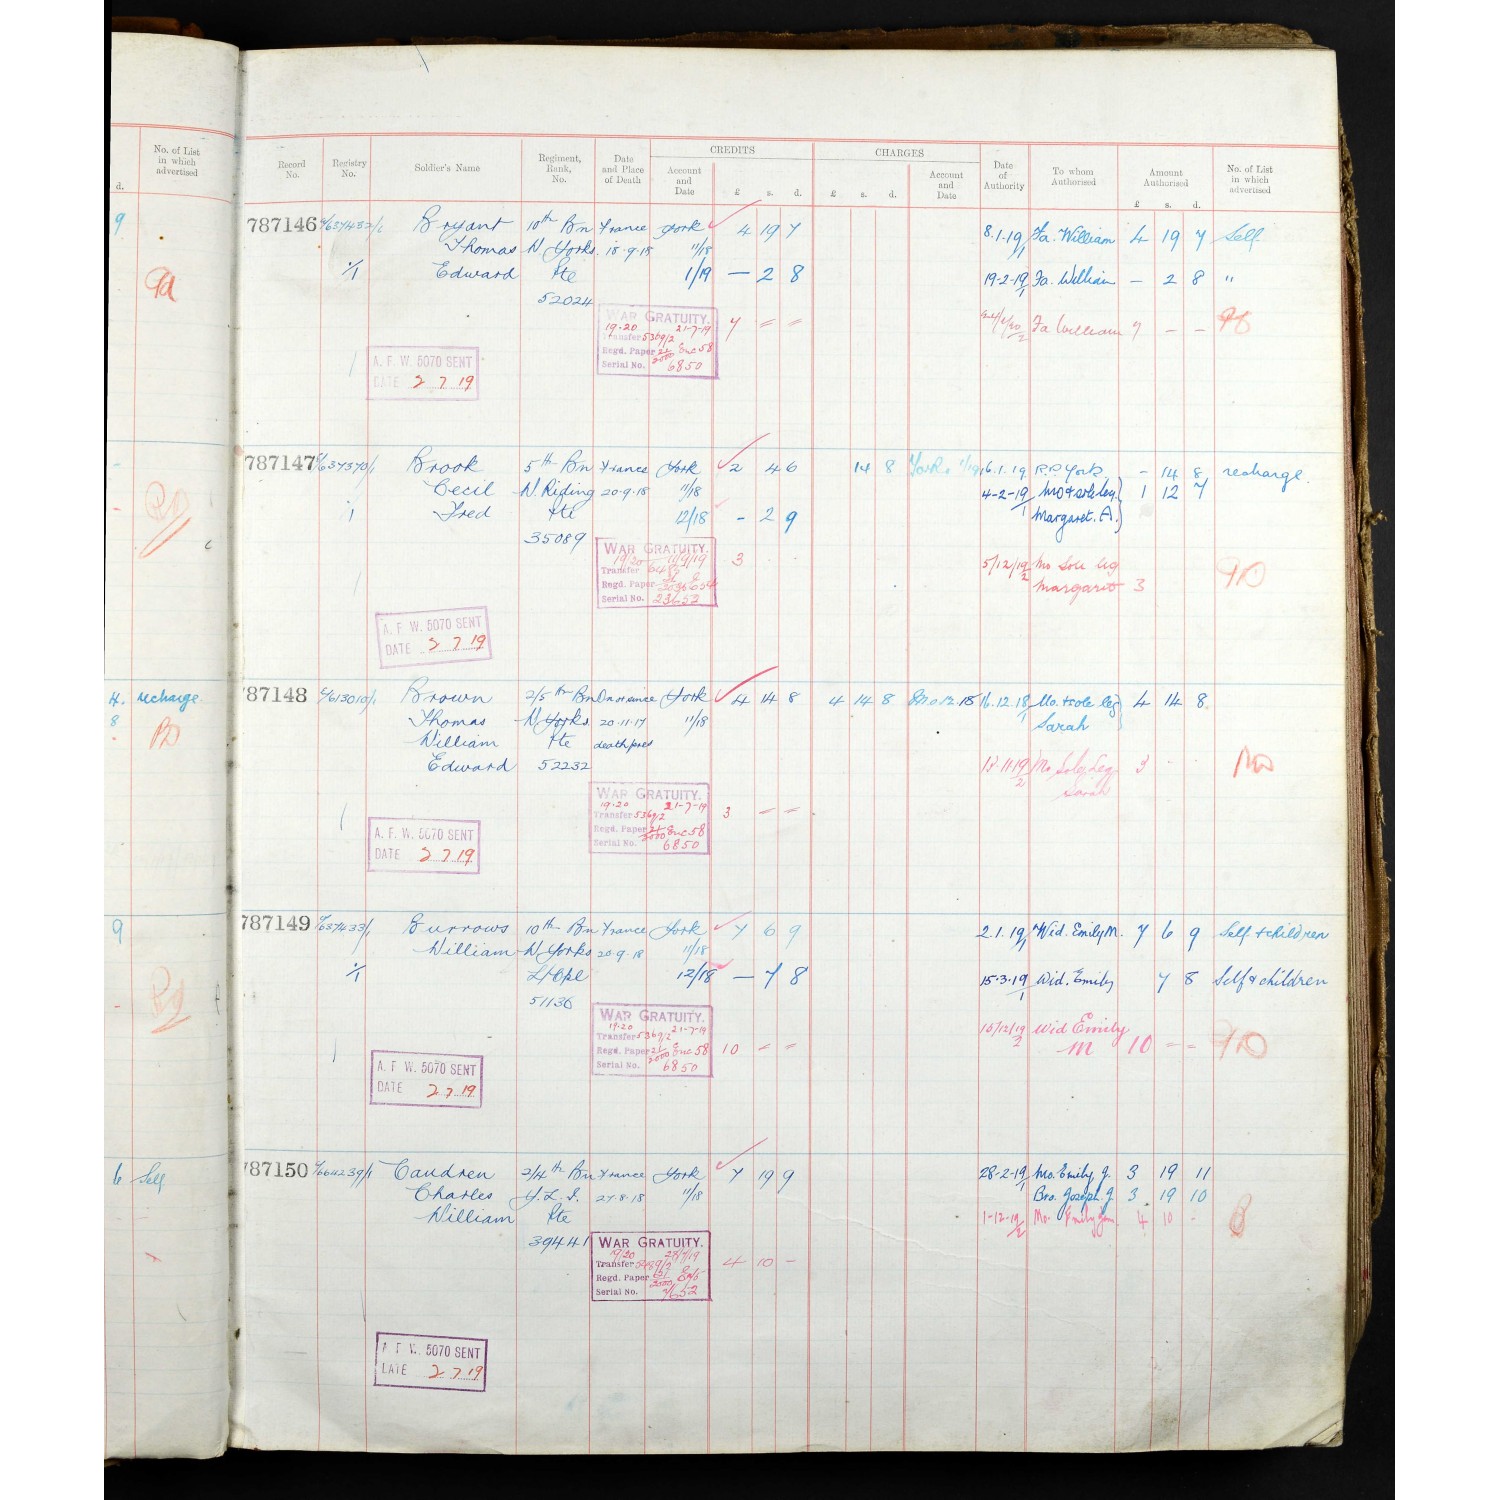 No. of List
in which
advertised
d.
9
recharge
8
9
6 Self
CREDITS CHARGES
Record No. Registry No. Soldier's Name Regiment, Rank, No. Date and Place of Death Account and Date £ s. d. £ s. d. Account and Date Date of Authority To whom Authorised Amount Authorised £ s. d. No. of List in which advertised
787146 Bryant 10th Bn France York 4 19 7 8.1.19 Fa. William 4 19 7 Self
Thomas N Yorks. 18.9.18 11/18
Edward Pte 1/19 — 2 8 19-2-19 Fa. William — 2 8 "
52024
WAR GRATUITY. 7 = = Fa William 7 — —
19-20 21-7-19
Transfer 5369/2
Regd. Paper 21/2000 Enc 58
Serial No. 6850
A. F. W. 5070 SENT
DATE 2 7 19
787147 Brook 5th Bn France York 2 4 6 14 8 York 11/19 16.1.19 R.P. York - 14 8 recharge.
Cecil N. Riding 20-9-18 11/18 4-2-19 Mo & sole leg. 1 12 7
Fred Pte 12/18 - 2 9 Margaret. A.
35089
WAR GRATUITY. 3 5/12/19 Mo Sole leg
19/20 11/9/19 Margaret 3
Transfer
Regd. Paper
Serial No. 23652
A. F. W. 5070 SENT
DATE 2 7 19
787148 Brown 2/5th Bn York 4 14 8 4 14 8 16.12.18 Mo. & sole leg 4 14 8
Thomas N Yorks. 20.11.17 11/18 Sarah
William Pte death pres
Edward 52232 Mo Sole Leg 3
Sarah
WAR GRATUITY. 3 = =
19-20 21-7-19
Transfer 5369/2
Regd. Paper 21/2000 Enc 58
Serial No. 6850
A. F. W. 5070 SENT
DATE 2 7 19
787149 Burrows 10th Bn France York 7 6 9 2.1.19 Wid. Emily M. 7 6 9 Self & children
William N Yorks 20-9-18 11/18
L/Cpl 12/18 — 7 8 15.3.19 Wid. Emily 7 8 Self & children
51136
WAR GRATUITY. 10 = = Wid Emily
19-20 21-7-19 M 10 = =
Transfer 5369/2
Regd. Paper 21/2000 Enc 58
Serial No. 6850
A. F. W. 5070 SENT
DATE 2 7 19
787150 Caudren 2/4th Bn France York 7 19 9 28-2-19 Mo. Emily J. 3 19 11
Charles Y.L.I. 27.8.18 11/18 Bro. Joseph J. 3 19 10
William Pte 1-12-19 Mo. Emily Jane 4 10 -
39441
WAR GRATUITY. 4 10 -
19/20
Transfer
Regd. Paper
Serial No.
A. F. W. 5070 SENT
DATE 2 7 19